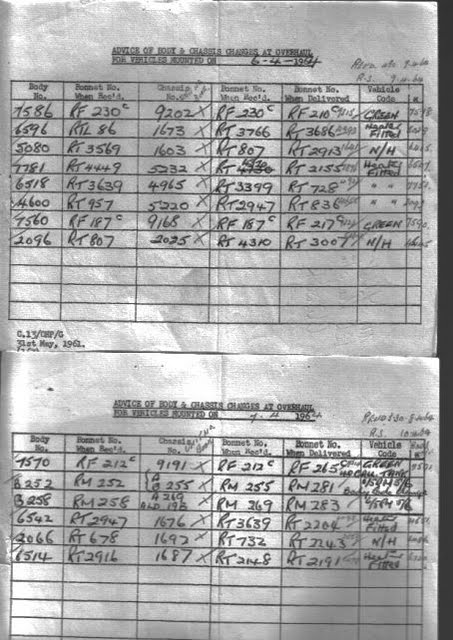 ADVICE OF BODY & CHASSIS CHANGES AT OVERHAUL
FOR VEHICLES MOUNTED ON 6-4-1964
Body No. Bonnet No. When Rec'd. Chassis No. Bonnet No. When Rec'd. Bonnet No. When Delivered Vehicle Code
7586 RF 230 C 9202 X RF 230 C RF 210 C GREEN
6596 RTL 86 1673 X RT 3766 RT 3686 Heater Fitted
5080 RT 3569 1603 X RT 807 RT 2913 N/H
7781 RT 4449 5232 X RT 2155 Heater Fitted
6518 RT 3639 4965 X RT 3399 RT 728 " "
4600 RT 957 5220 X RT 2947 RT 836 " "
7560 RF 187 C 9168 X RF 187 C RF 217 C GREEN
2096 RT 807 2025 X RT 4310 RT 3007 N/H
C.13/OHP/G
31st May, 1961.
ADVICE OF BODY & CHASSIS CHANGES AT OVERHAUL
FOR VEHICLES MOUNTED ON 7-4-1964
Body No. Bonnet No. When Rec'd. Chassis Bonnet No. When Rec'd. Bonnet No. When Delivered Vehicle Code
7570 RF 212 C 9191 X RF 212 C RF 265 GREEN
B 252 RM 252 B 255 X RM 255 RM 281
B 258 RM 258 A 269 X RM 269 RM 283
6542 RT 2947 1676 X RT 3639 RT 2204 Heater Fitted
2066 RT 678 1692 X RT 732 RT 2243 N/H
6514 RT 2916 1687 X RT 2148 RT 2191 Heater Fitted